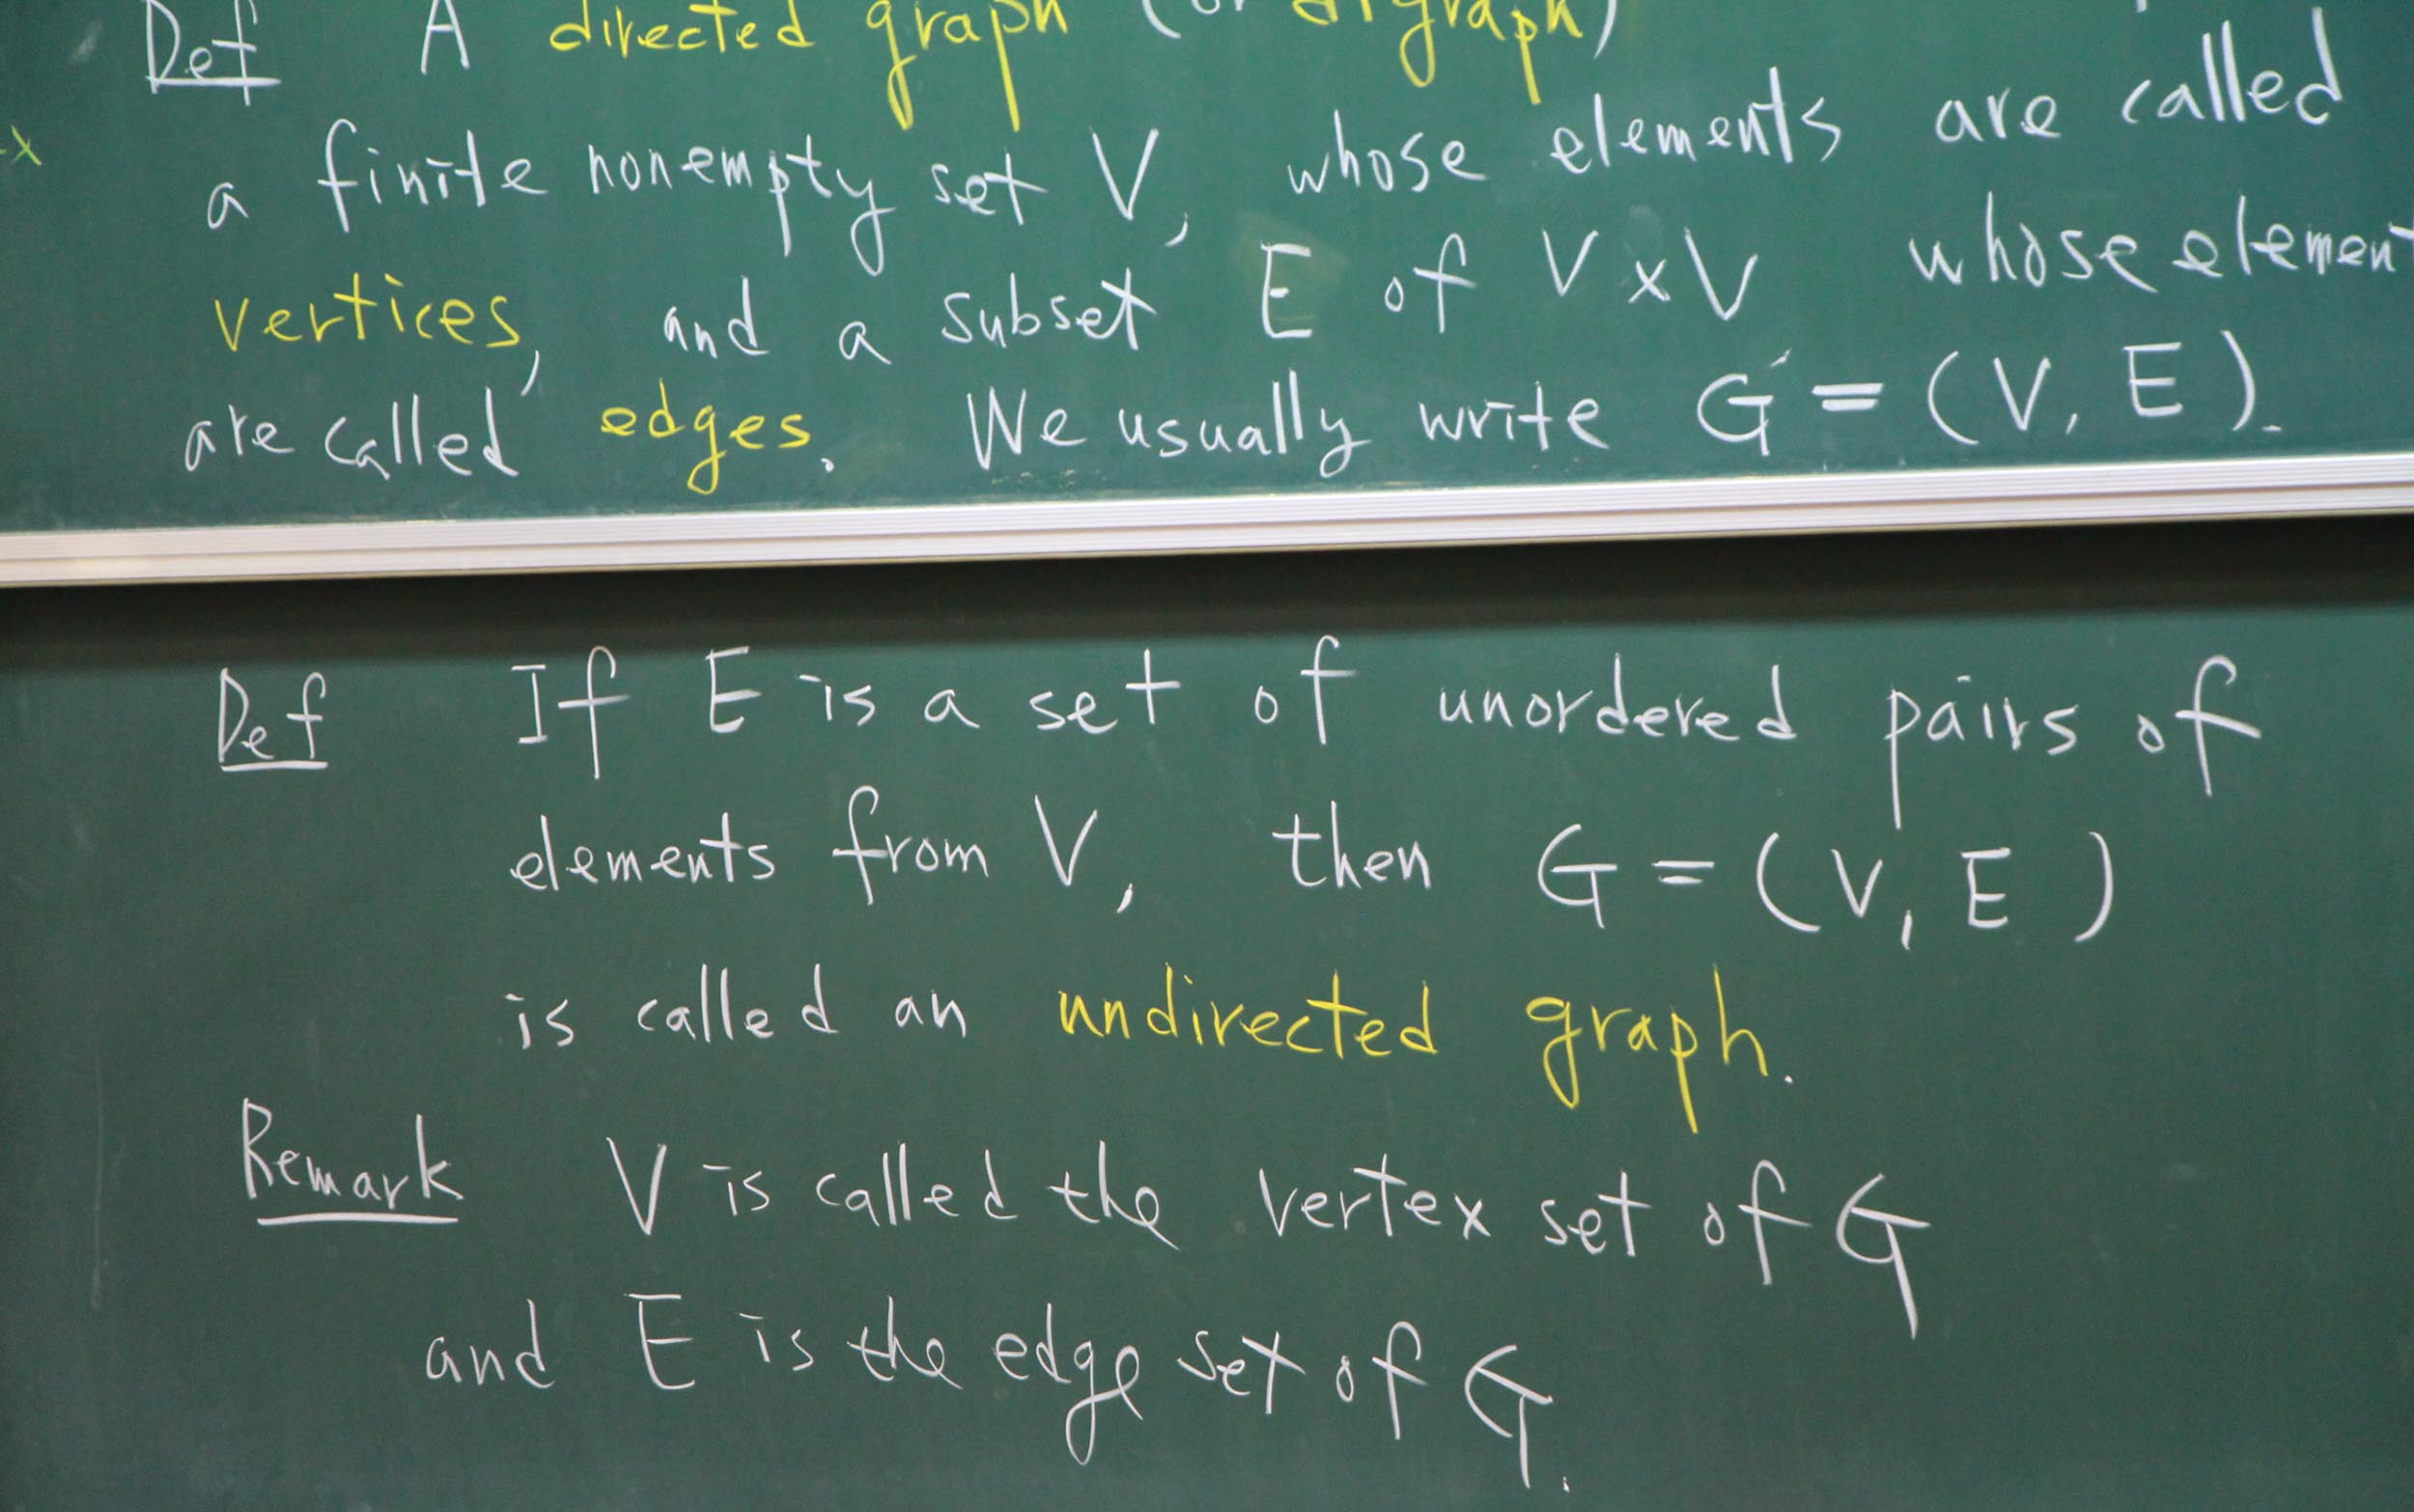 Def A directed graph (or digraph)
a finite nonempty set V, whose elements are called
vertices, and a subset E of V x V whose element
are called edges. We usually write G = (V, E).
Def If E is a set of unordered pairs of
elements from V, then G = (V, E)
is called an undirected graph.
Remark V is called the vertex set of G
and E is the edge set of G.